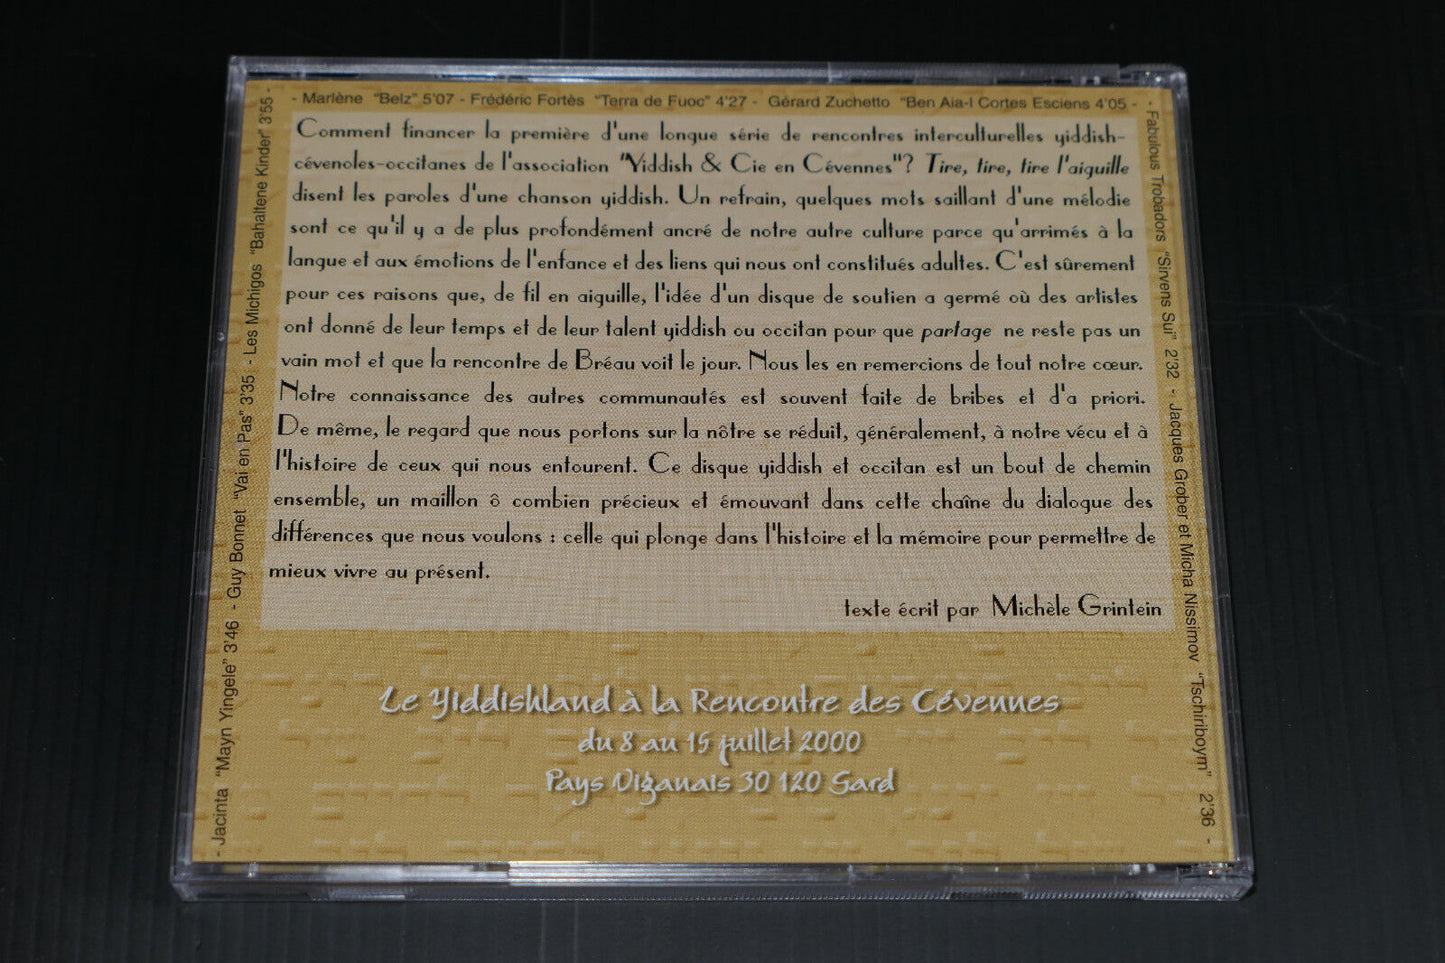 - Jacinta "Mayn Yingele" 3'46 - Guy Bonnet "Vai en Pas" 3'35 - Les Michigos "Bahaltene Kinder" 3'55 -
- Marlène "Belz" 5'07 - Frédéric Fortès "Terra de Fuoc" 4'27 - Gérard Zuchetto "Ben Aia-l Cortes Esciens 4'05 -
- Fabulous Trobadors "Sirvens Sui" 2'32 - Jacques Grober et Micha Nissimov "Tschiriboym" 2'36 -
Comment financer la première d'une longue série de rencontres interculturelles yiddish-
cévenoles-occitanes de l'association "Yiddish & Cie en Cévennes"? Tire, tire, tire l'aiguille
disent les paroles d'une chanson yiddish. Un refrain, quelques mots saillant d'une mélodie
sont ce qu'il y a de plus profondément ancré de notre autre culture parce qu'arrimés à la
langue et aux émotions de l'enfance et des liens qui nous ont constitués adultes. C'est sûrement
pour ces raisons que, de fil en aiguille, l'idée d'un disque de soutien a germé où des artistes
ont donné de leur temps et de leur talent yiddish ou occitan pour que partage ne reste pas un
vain mot et que la rencontre de Bréau voit le jour. Nous les en remercions de tout notre cœur.
Notre connaissance des autres communautés est souvent faite de bribes et d'a priori.
De même, le regard que nous portons sur la nôtre se réduit, généralement, à notre vécu et à
l'histoire de ceux qui nous entourent. Ce disque yiddish et occitan est un bout de chemin
ensemble, un maillon ô combien précieux et émouvant dans cette chaîne du dialogue des
différences que nous voulons : celle qui plonge dans l'histoire et la mémoire pour permettre de
mieux vivre au présent.
texte écrit par Michèle Grintein
Le Yiddishland à la Rencontre des Cévennes
du 8 au 15 juillet 2000
Pays Viganais 30 120 Gard